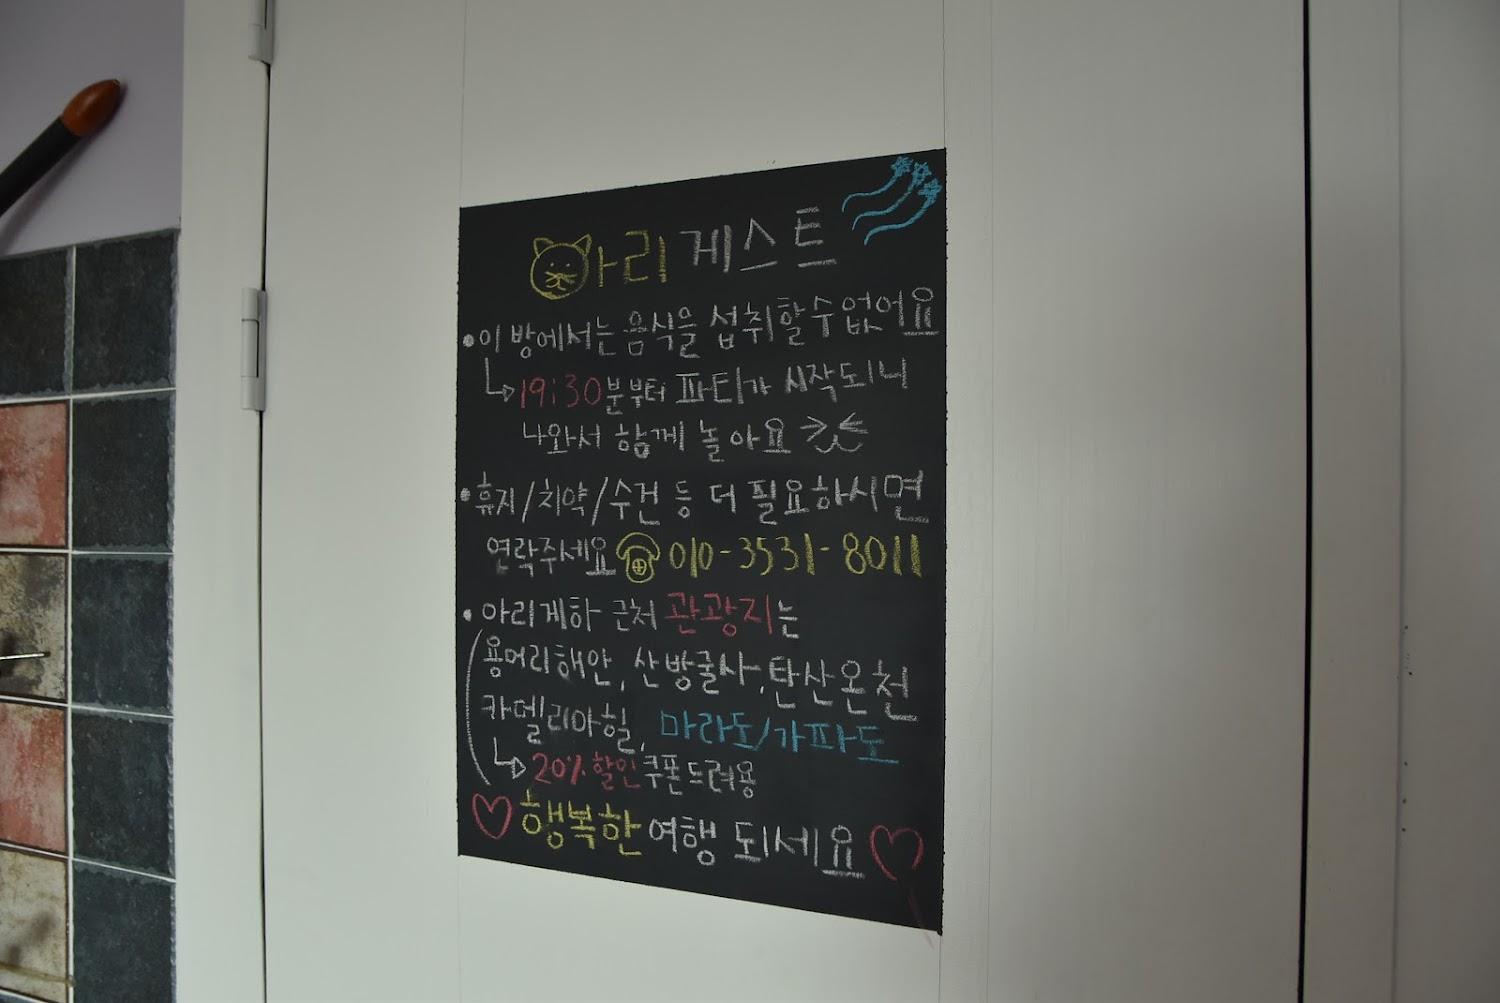 아리 게스트
• 이 방에서는 음식을 섭취할 수 없어요
19:30분부터 파티가 시작되니
나와서 함께 놀아요
• 휴지/치약/수건 등 더 필요하시면
연락주세요 010-3531-8011
• 아리게하 근처 관광지는
용머리해안, 산방굴사, 탄산온천
카멜리아힐, 마라도/가파도
20% 할인 쿠폰드려용
행복한 여행 되세요